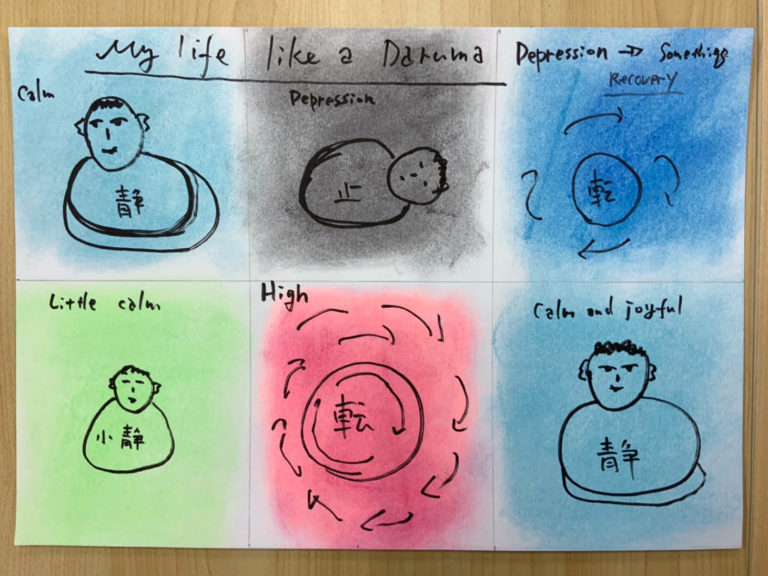 My life like a Daruma
Calm
静
Depression
止
Depression → Something
Recovery
転
Little calm
小静
High
転
Calm and joyful
静